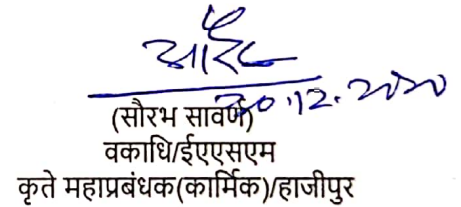 30.12.2020
(सौरभ सावर्ण)
वकाधि/ईएएसएम
कृते महाप्रबंधक(कार्मिक)/हाजीपुर